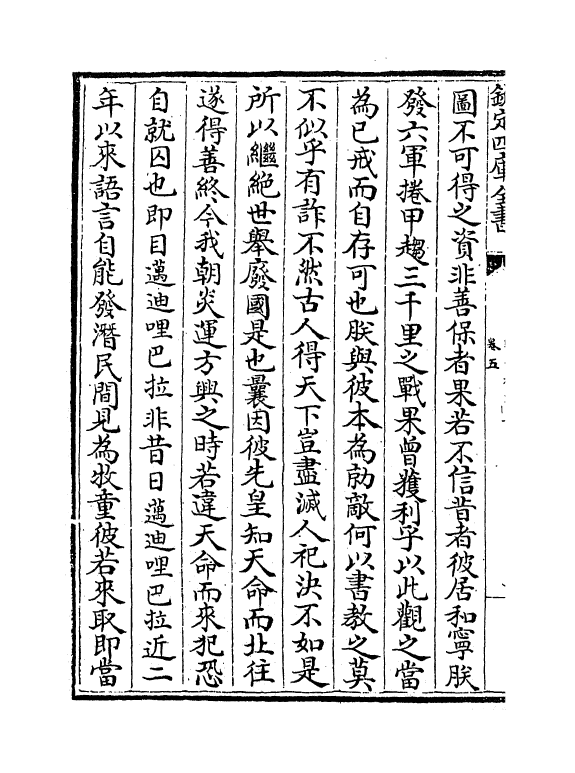 欽定四庫全書
卷五
圖不可得之資非善保者果若不信昔者彼居和寧朕
發六軍捲甲趨三千里之戰果曾獲利乎以此觀之當
為已戒而自存可也朕與彼本為勍敵何以書教之莫
不似乎有詐不然古人得天下豈盡滅人祀決不如是
所以繼絶世舉廢國是也曩因彼先皇知天命而北往
遂得善終今我朝炎運方興之時若違天命而來犯恐
自就囚也即目邁迪哩巴拉非昔日邁迪哩巴拉近二
年以來語言自能發潛民間見為牧童彼若來取即當